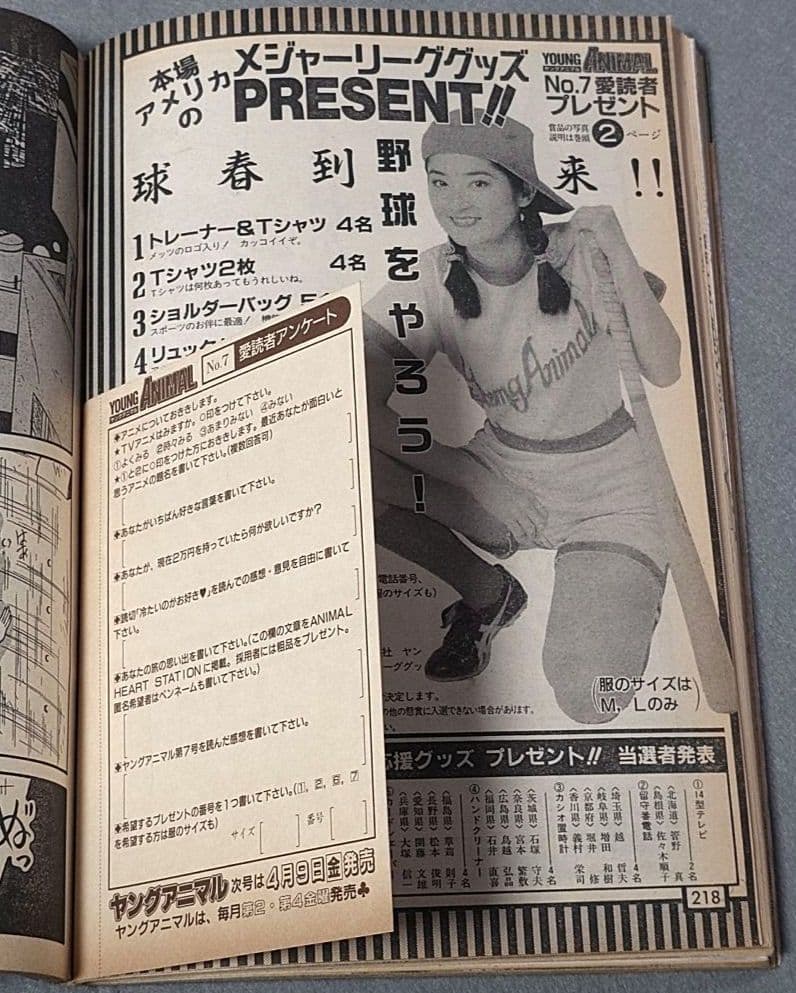 本場
アメリカの
メジャーリーググッズ
PRESENT!!
YOUNG ANIMAL
ヤングアニマル
No.7 愛読者
プレゼント
賞品の写真
説明は巻頭
2ページ
球春到来!!
野球をやろう!
1 トレーナー&Tシャツ 4名
メッツのロゴ入り! カッコイイぞ。
2 Tシャツ2枚 4名
Tシャツは何枚あってもうれしいね。
3 ショルダーバッグ
スポーツのお伴に最適!
4 リュック
Young Animal
電話番号、
服のサイズも)
社 ヤン
ーググッ
決定します。
の他の懸賞に入選できない場合があります。
(服のサイズは
M, Lのみ)
YOUNG ANIMAL
ヤングアニマル
No.7 愛読者アンケート
◆アニメについておききします。
★TVアニメはみますか。○印をつけて下さい。
①よくみる 2時々みる ③あまりみない ④みない
★①と2に○印をつけた方におききします。最近あなたが面白いと
思うアニメの題名を書いて下さい。(複数回答可)
◆あなたがいちばん好きな言葉を書いて下さい。
◆あなたが、現在2万円を持っていたら何が欲しいですか?
◆読切「冷たいのがお好き♥」を読んでの感想・意見を自由に書いて
下さい。
◆あなたの旅の思い出を書いて下さい。(この欄の文章をANIMAL
HEART STATIONに掲載。採用者には粗品をプレゼント。
匿名希望者はペンネームも書いて下さい。)
◆ヤングアニマル第7号を読んだ感想を書いて下さい。
◆希望するプレゼントの番号を1つ書いて下さい。(1, 2, 
を希望する方は服のサイズも)
サイズ[ ] 番号[ ]
ヤングアニマル 次号は4月9日金発売
ヤングアニマルは、毎月第2・第4金曜発売♣
応援グッズ プレゼント!! 当選者発表
①14型テレビ 2名
(北海道)菅野 真
(島根県)佐々木順子
②留守番電話 4名
(埼玉県)越 哲夫
(岐阜県)増田 和樹
(京都府)堀井 修
(香川県)義村 栄司
③カシオ置時計 4名
(茨城県)石塚 守夫
(奈良県)宮本 繁敷
(広島県)鳥越 弘晶
(福岡県)石井 直喜
④ハンドクリーナー 4名
(福島県)草苅 則子
(長野県)松本 俊明
(愛知県)開藤 文雄
(兵庫県)大塚 信一
218